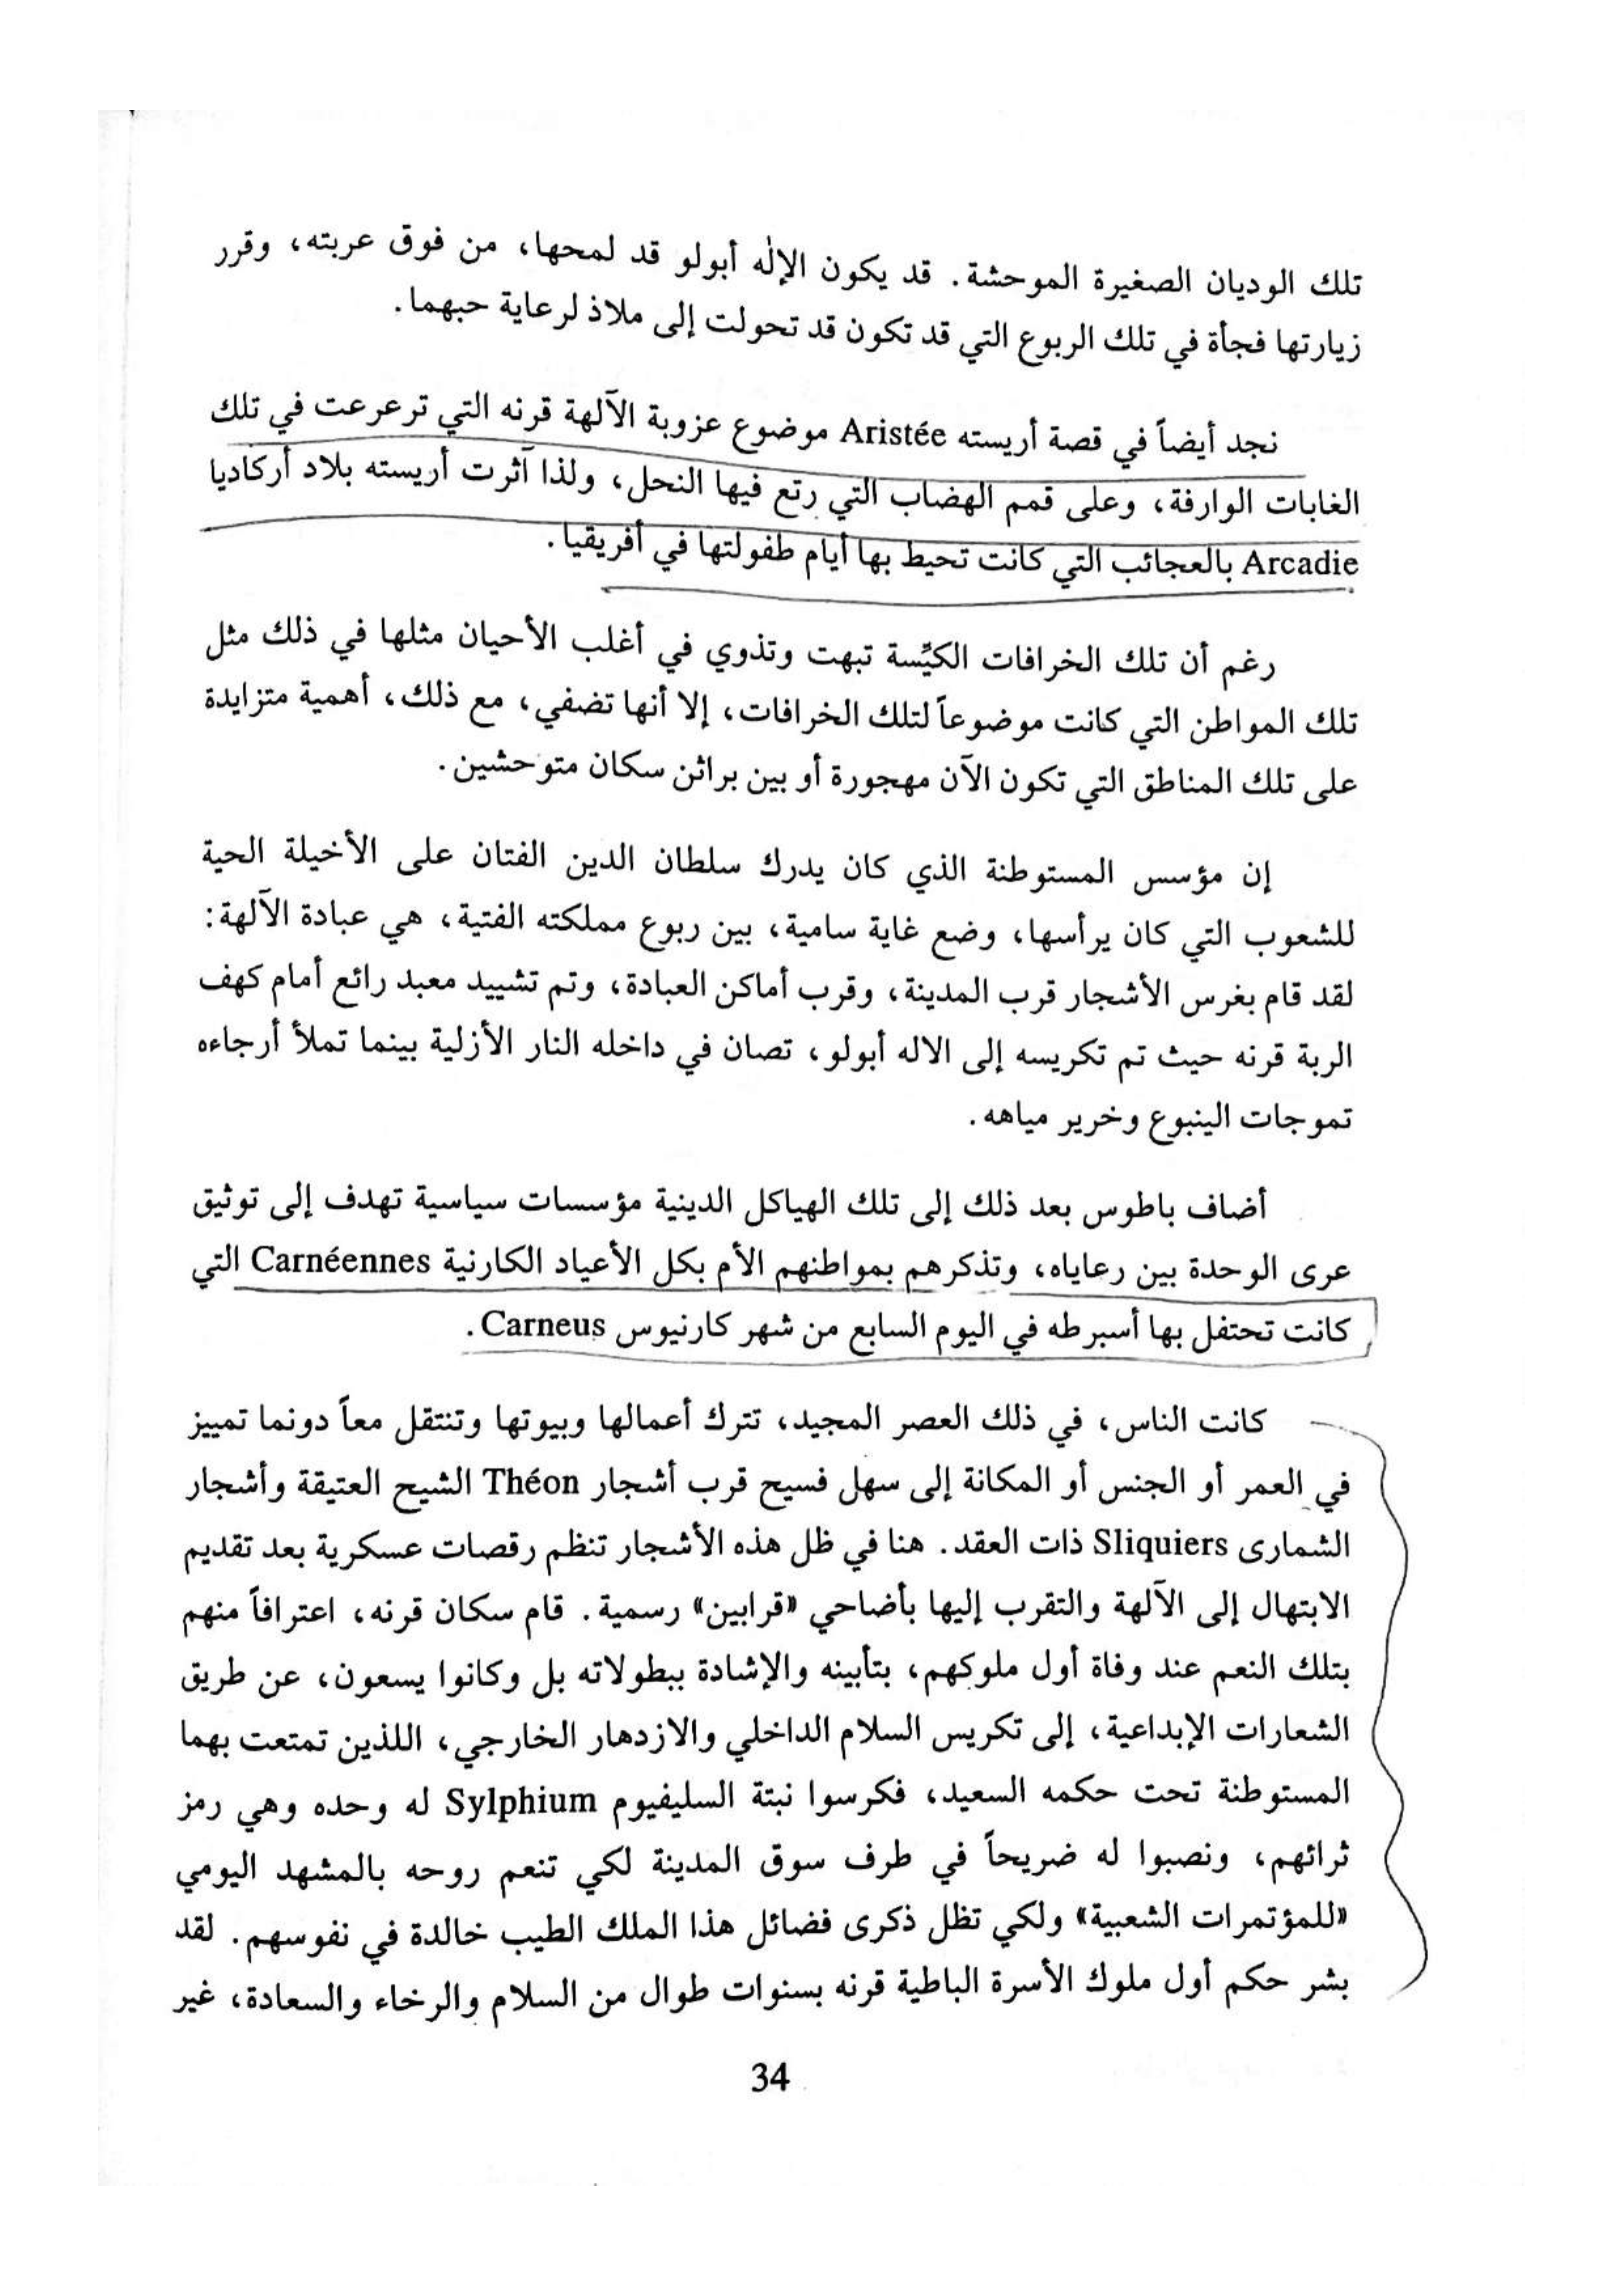 تلك الوديان الصغيرة الموحشة. قد يكون الإلٰه أبولو قد لمحها، من فوق عربته، وقرر
زيارتها فجأة في تلك الربوع التي قد تكون قد تحولت إلى ملاذ لرعاية حبهما.
نجد أيضاً في قصة أريسته Aristée موضوع عزوبة الآلهة قرنه التي ترعرعت في تلك
الغابات الوارفة، وعلى قمم الهضاب التي رتع فيها النحل، ولذا آثرت أريسته بلاد أركاديا
Arcadie بالعجائب التي كانت تحيط بها أيام طفولتها في أفريقيا.
رغم أن تلك الخرافات الكيِّسة تبهت وتذوي في أغلب الأحيان مثلها في ذلك مثل
تلك المواطن التي كانت موضوعاً لتلك الخرافات، إلا أنها تضفي، مع ذلك، أهمية متزايدة
على تلك المناطق التي تكون الآن مهجورة أو بين براثن سكان متوحشين.
إن مؤسس المستوطنة الذي كان يدرك سلطان الدين الفتان على الأخيلة الحية
للشعوب التي كان يرأسها، وضع غاية سامية، بين ربوع مملكته الفتية، هي عبادة الآلهة:
لقد قام بغرس الأشجار قرب المدينة، وقرب أماكن العبادة، وتم تشييد معبد رائع أمام كهف
الربة قرنه حيث تم تكريسه إلى الاله أبولو، تصان في داخله النار الأزلية بينما تملأ أرجاءه
تموجات الينبوع وخرير مياهه.
أضاف باطوس بعد ذلك إلى تلك الهياكل الدينية مؤسسات سياسية تهدف إلى توثيق
عرى الوحدة بين رعاياه، وتذكرهم بمواطنهم الأم بكل الأعياد الكارنية Carnéennes التي
كانت تحتفل بها أسبرطه في اليوم السابع من شهر كارنيوس Carneus.
كانت الناس، في ذلك العصر المجيد، تترك أعمالها وبيوتها وتنتقل معاً دونما تمييز
في العمر أو الجنس أو المكانة إلى سهل فسيح قرب أشجار Théon الشيح العتيقة وأشجار
الشمارى Sliquiers ذات العقد. هنا في ظل هذه الأشجار تنظم رقصات عسكرية بعد تقديم
الابتهال إلى الآلهة والتقرب إليها بأضاحي «قرابين» رسمية. قام سكان قرنه، اعترافاً منهم
بتلك النعم عند وفاة أول ملوكهم، بتأبينه والإشادة ببطولاته بل وكانوا يسعون، عن طريق
الشعارات الإبداعية، إلى تكريس السلام الداخلي والازدهار الخارجي، اللذين تمتعت بهما
المستوطنة تحت حكمه السعيد، فكرسوا نبتة السليفيوم Sylphium له وحده وهي رمز
ثرائهم، ونصبوا له ضريحاً في طرف سوق المدينة لكي تنعم روحه بالمشهد اليومي
«للمؤتمرات الشعبية» ولكي تظل ذكرى فضائل هذا الملك الطيب خالدة في نفوسهم. لقد
بشر حكم أول ملوك الأسرة الباطية قرنه بسنوات طوال من السلام والرخاء والسعادة، غير
34